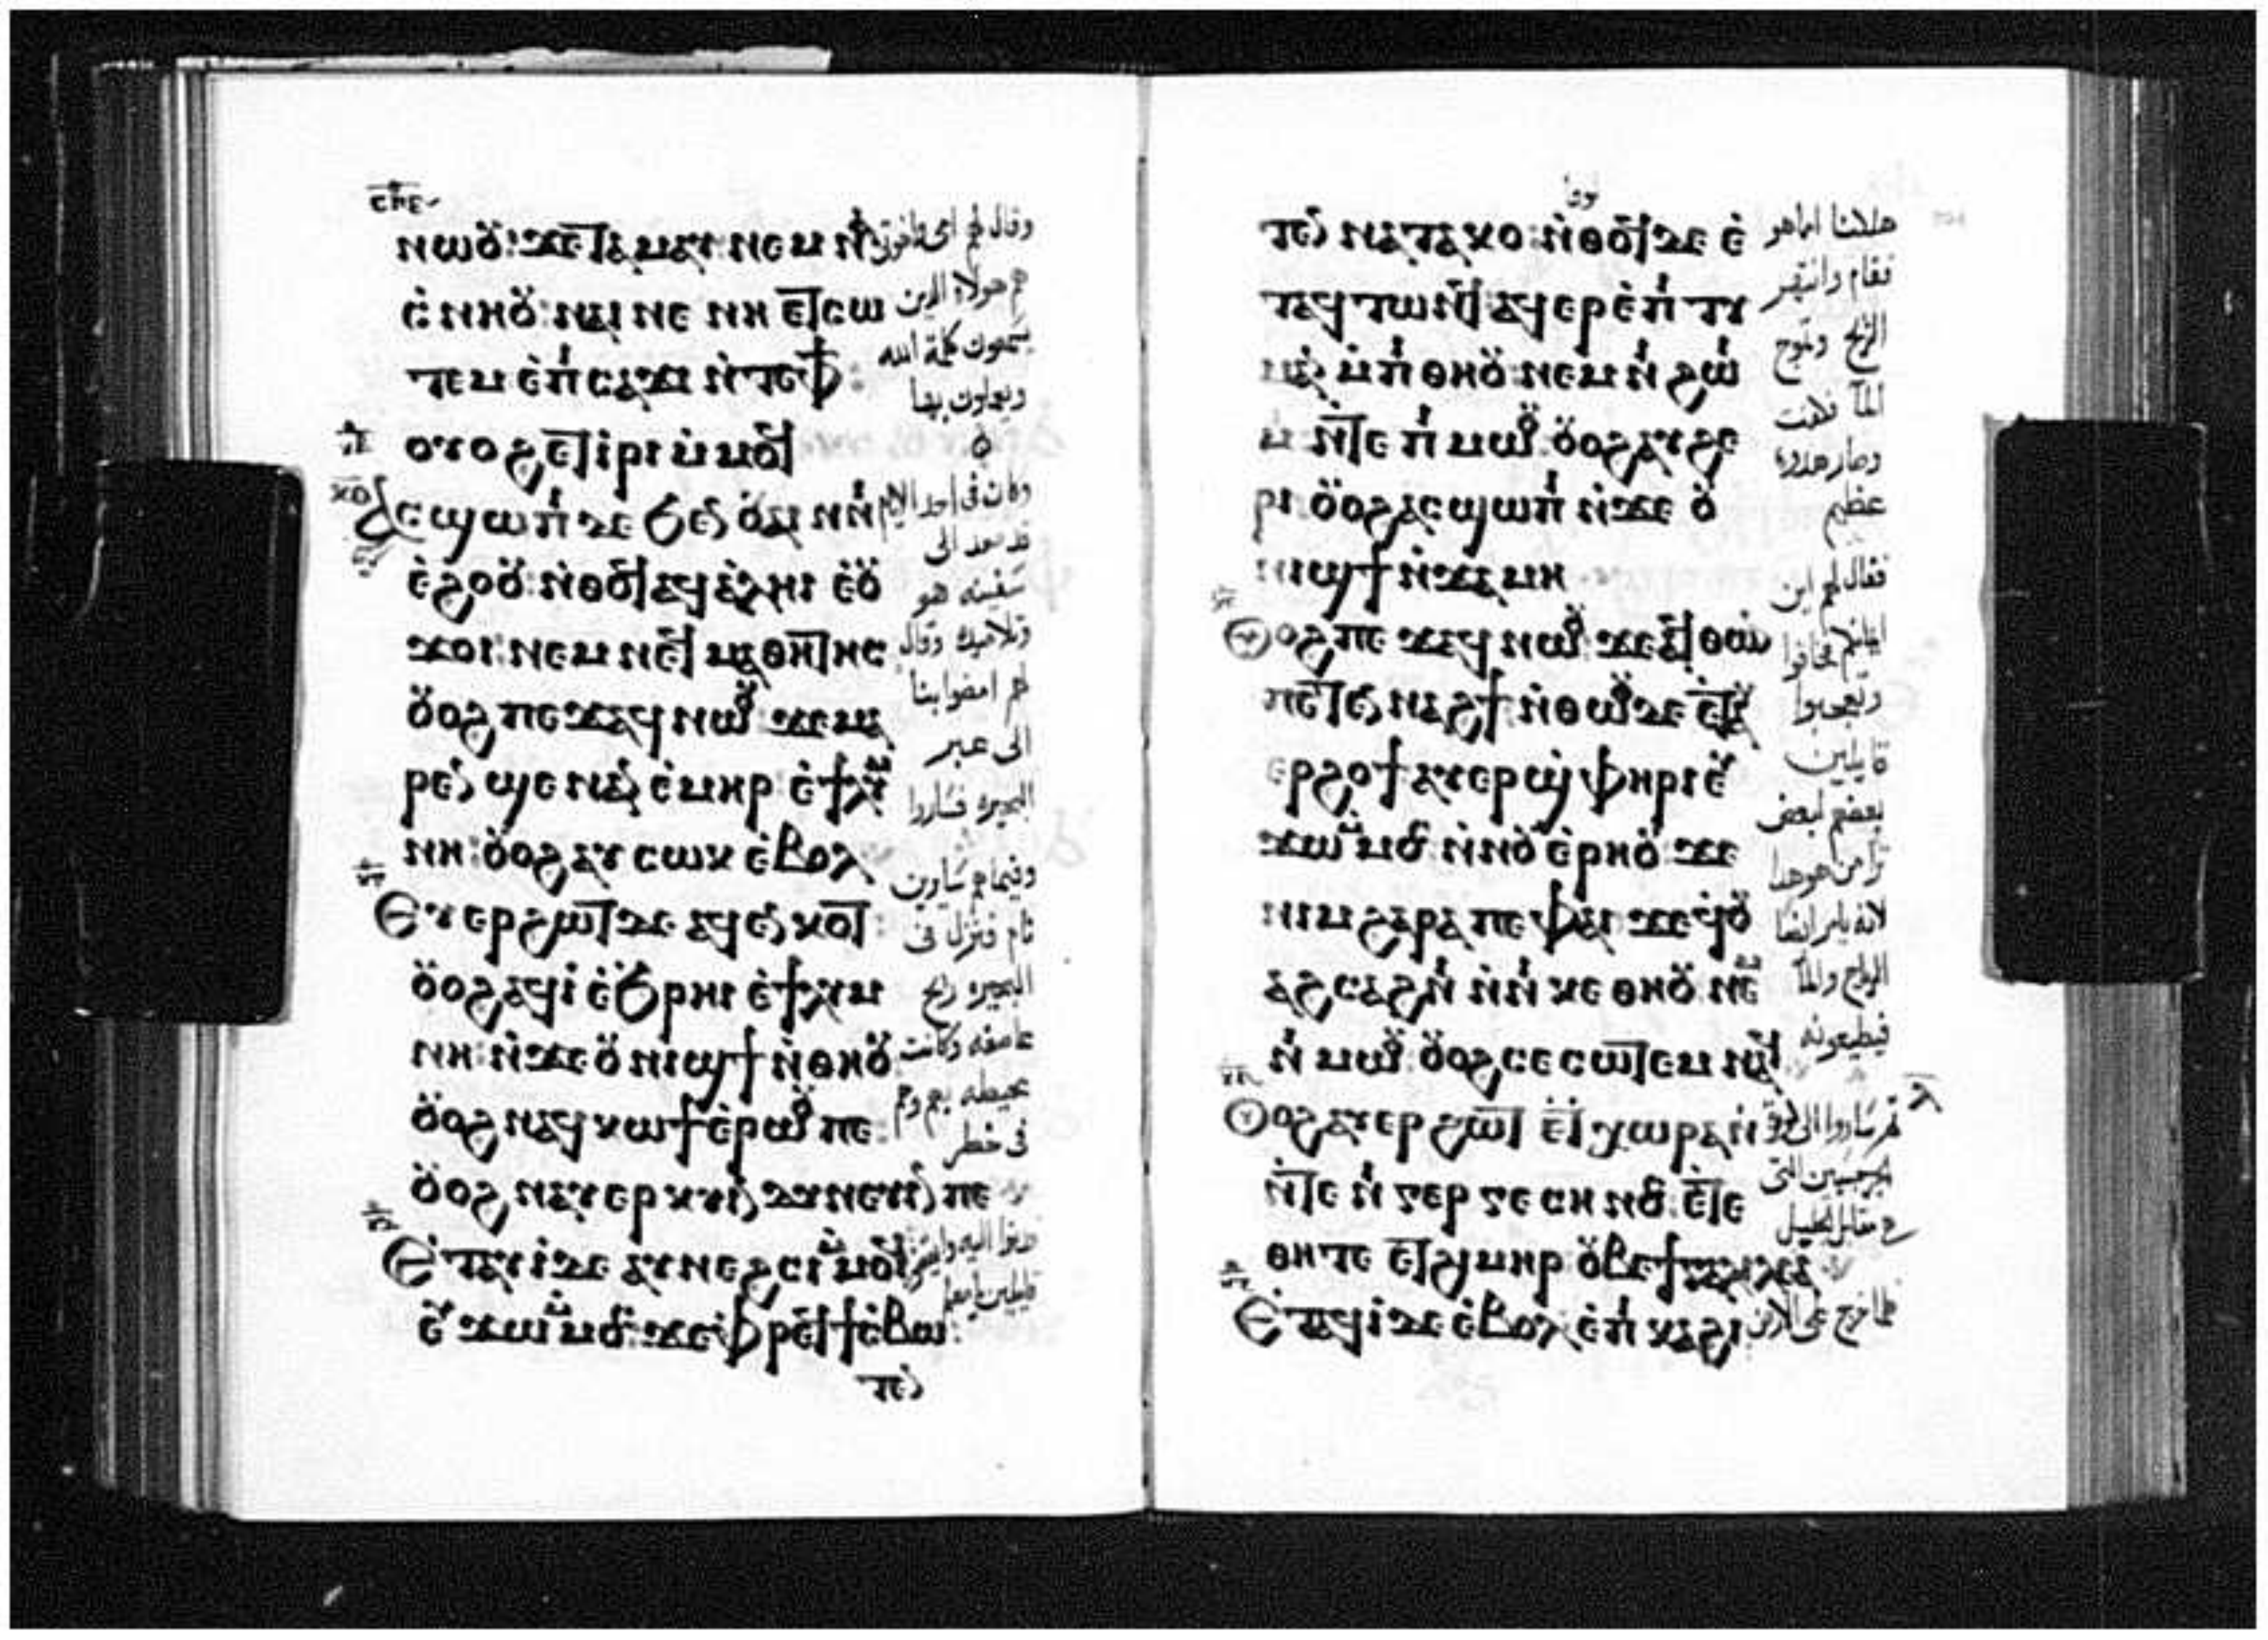 ⲥ̅ⲡ̅ⲉ̅
ⲛⲱⲟⲩ ϫⲉ ⲧⲁⲙⲁⲩ ⲛⲉⲙ ⲛⲁ
ⲥ̀ⲛⲏⲟⲩ ⲛⲁⲓ ⲛⲉ ⲛⲏ ⲉⲧⲥⲱ
ⲧⲉⲙ ⲉ̀ⲡⲥⲁϫⲓ ⲛ̀ⲧⲉⲫϯ:
ⲟⲩⲟϩ ⲉⲧⲓⲣⲓ ⲙ̀ⲙⲟϥ
ⲁⲥϣⲱⲡⲓ ⲇⲉ ϧⲉⲛ ⲟⲩⲁⲓ ⲛⲛⲓ
ⲉ̀ϩⲟⲟⲩ ⲛ̀ⲑⲟϥ ⲁϥⲁ̀ⲗⲏⲓ ⲉ̀ⲟⲩ
ϫⲟⲓ ⲛⲉⲙ ⲛⲉϥⲙⲁⲑⲏⲧⲏⲥ
ⲟⲩⲟϩ ⲡⲉϫⲁϥ ⲛⲱⲟⲩ ϫⲉ ⲙⲁ
ⲣⲉⲛ ϣⲉ ⲛⲁⲛ ⲉ̀ⲙⲏⲣ ⲉ̀ϯⲗⲩⲙ
ⲛⲏ: ⲟⲩⲟϩ ⲁⲩⲥⲱⲕ ⲉ̀ⲃⲟⲗ
Ⲉⲩⲉⲣϩⲱⲧ ⲇⲉ ⲁϥⲉⲛⲕⲟⲧ:
ⲟⲩⲟϩ ⲁϥⲓ̀ ⲉ̀ϧⲣⲏⲓ ⲉ̀ϯⲗⲩⲙ
ⲛⲏ: ⲛ̀ϫⲉ ⲟⲩⲛⲓϣϯ ⲛ̀ⲑⲏⲟⲩ
ⲟⲩⲟϩ ⲛⲁϥⲕⲱϯ ⲉ̀ⲣⲱⲟⲩ ⲡⲉ:
ⲟⲩⲟϩ ⲛⲁⲩⲉⲣⲕⲩⲛⲇⲩⲛⲉⲩⲓⲛ ⲡⲉ
Ⲉ̀ⲧⲁⲩⲓ̀ ⲇⲉ ⲁⲩⲛⲉϩⲥⲓ ⲙ̀ⲙⲟϥ
ⲉⲩϫⲱ ⲙ̀ⲙⲟⲥ: ϫⲉ ⲫⲣⲉϥϯⲥ̀ⲃⲱ:
ⲧⲉⲛ
هم هولاء الذين
يسمعون كلمة الله
ويعملون بها
وكان في احد الايام
قد صعد الى
سفينه هو
وتلاميذه وقال
لهم امضوا بنا
الى عبر
البحيره فساروا
وفيما هم سايرين
نام فنزل في
البحيره ريح
عاصفه وكانت
محيطه بهم وهم
في خطر
ⲧⲉⲛ ⲛⲁⲧⲁⲕⲟ: ⲛ̀ⲑⲟϥ ⲇⲉ ⲉ̀
ⲧⲁϥⲧⲱⲛϥ ⲁϥⲉⲣⲉ̀ⲡⲓⲧⲓ
ⲙⲁⲛ ⲙ̀ⲡⲓⲑⲏⲟⲩ: ⲛⲉⲙ ⲛⲓϩⲱⲓ
ⲙ ⲛ̀ⲧⲉ ⲡⲓⲙⲱⲟⲩ: ⲟⲩⲟϩ ⲁⲩϩⲉ
ⲣⲓ: ⲟⲩⲟϩ ⲁⲥϣⲱⲡⲓ ⲛ̀ϫⲉ ⲟⲩ
ⲛⲓϣϯ ⲛ̀ϫⲁⲙⲏ
Ⲟⲩⲟϩ ⲡⲉϫⲁϥ ⲛⲱⲟⲩ ϫⲉ ⲁϥⲑⲱⲛ
ⲡⲉⲧⲉⲛⲛⲁϩϯ ⲛ̀ⲑⲱⲟⲩ ⲇⲉ ⲉ̀ⲧⲁⲩ
ⲉⲣϩⲟϯ ⲁⲩⲉⲣϣ̀ⲫⲏⲣⲓ ⲉⲩ
ϫⲱ ⲙ̀ⲙⲟⲥ ⲛ̀ⲛⲟⲩⲉ̀ⲣⲏⲟⲩ ϫⲉ
ⲛⲓⲙ ϩⲁⲣⲁ ⲡⲉ ⲫⲁⲓ ϫⲉ ϥ̀ⲟⲩ
ⲁϩⲥⲁϩⲛⲓ ⲛ̀ⲛⲓⲕⲉⲑⲏⲟⲩ ⲛⲉⲙ
ⲛⲓⲙⲱⲟⲩ: ⲟⲩⲟϩ ⲥⲉⲥⲱⲧⲉⲙ ⲛⲁϥ
Ⲟⲩⲟϩ ⲁⲩⲉⲣϩⲱⲧ ⲉ̀ϯⲭⲱⲣⲁ ⲛ̀
ⲛ̀ⲧⲉ ⲛⲓⲅⲉⲣⲅⲉⲥⲏⲛⲟⲥ: ⲉ̀ⲧⲉ
ⲑⲏⲧⲉ ⲉⲧϩⲓⲙⲏⲣ ⲟⲩⲃⲉ ϯⲅⲁⲗⲓⲗⲉⲁ̀
Ⲉ̀ⲧⲁϥⲓ̀ ⲇⲉ ⲉ̀ⲃⲟⲗ ⲉ̀ⲡⲓⲕⲁϩⲓ
هلكنا اما هو
فقام وانتهر
الريح وتموج
الما فكانت
وصار هدوء
عظيم
فقال لهم اين
ايمانكم فخافوا
وتعجبوا
قايلين
بعضهم لبعض
ترا من هو هدا
لانه يامر ايضا
الرياح والما
فيطيعونه